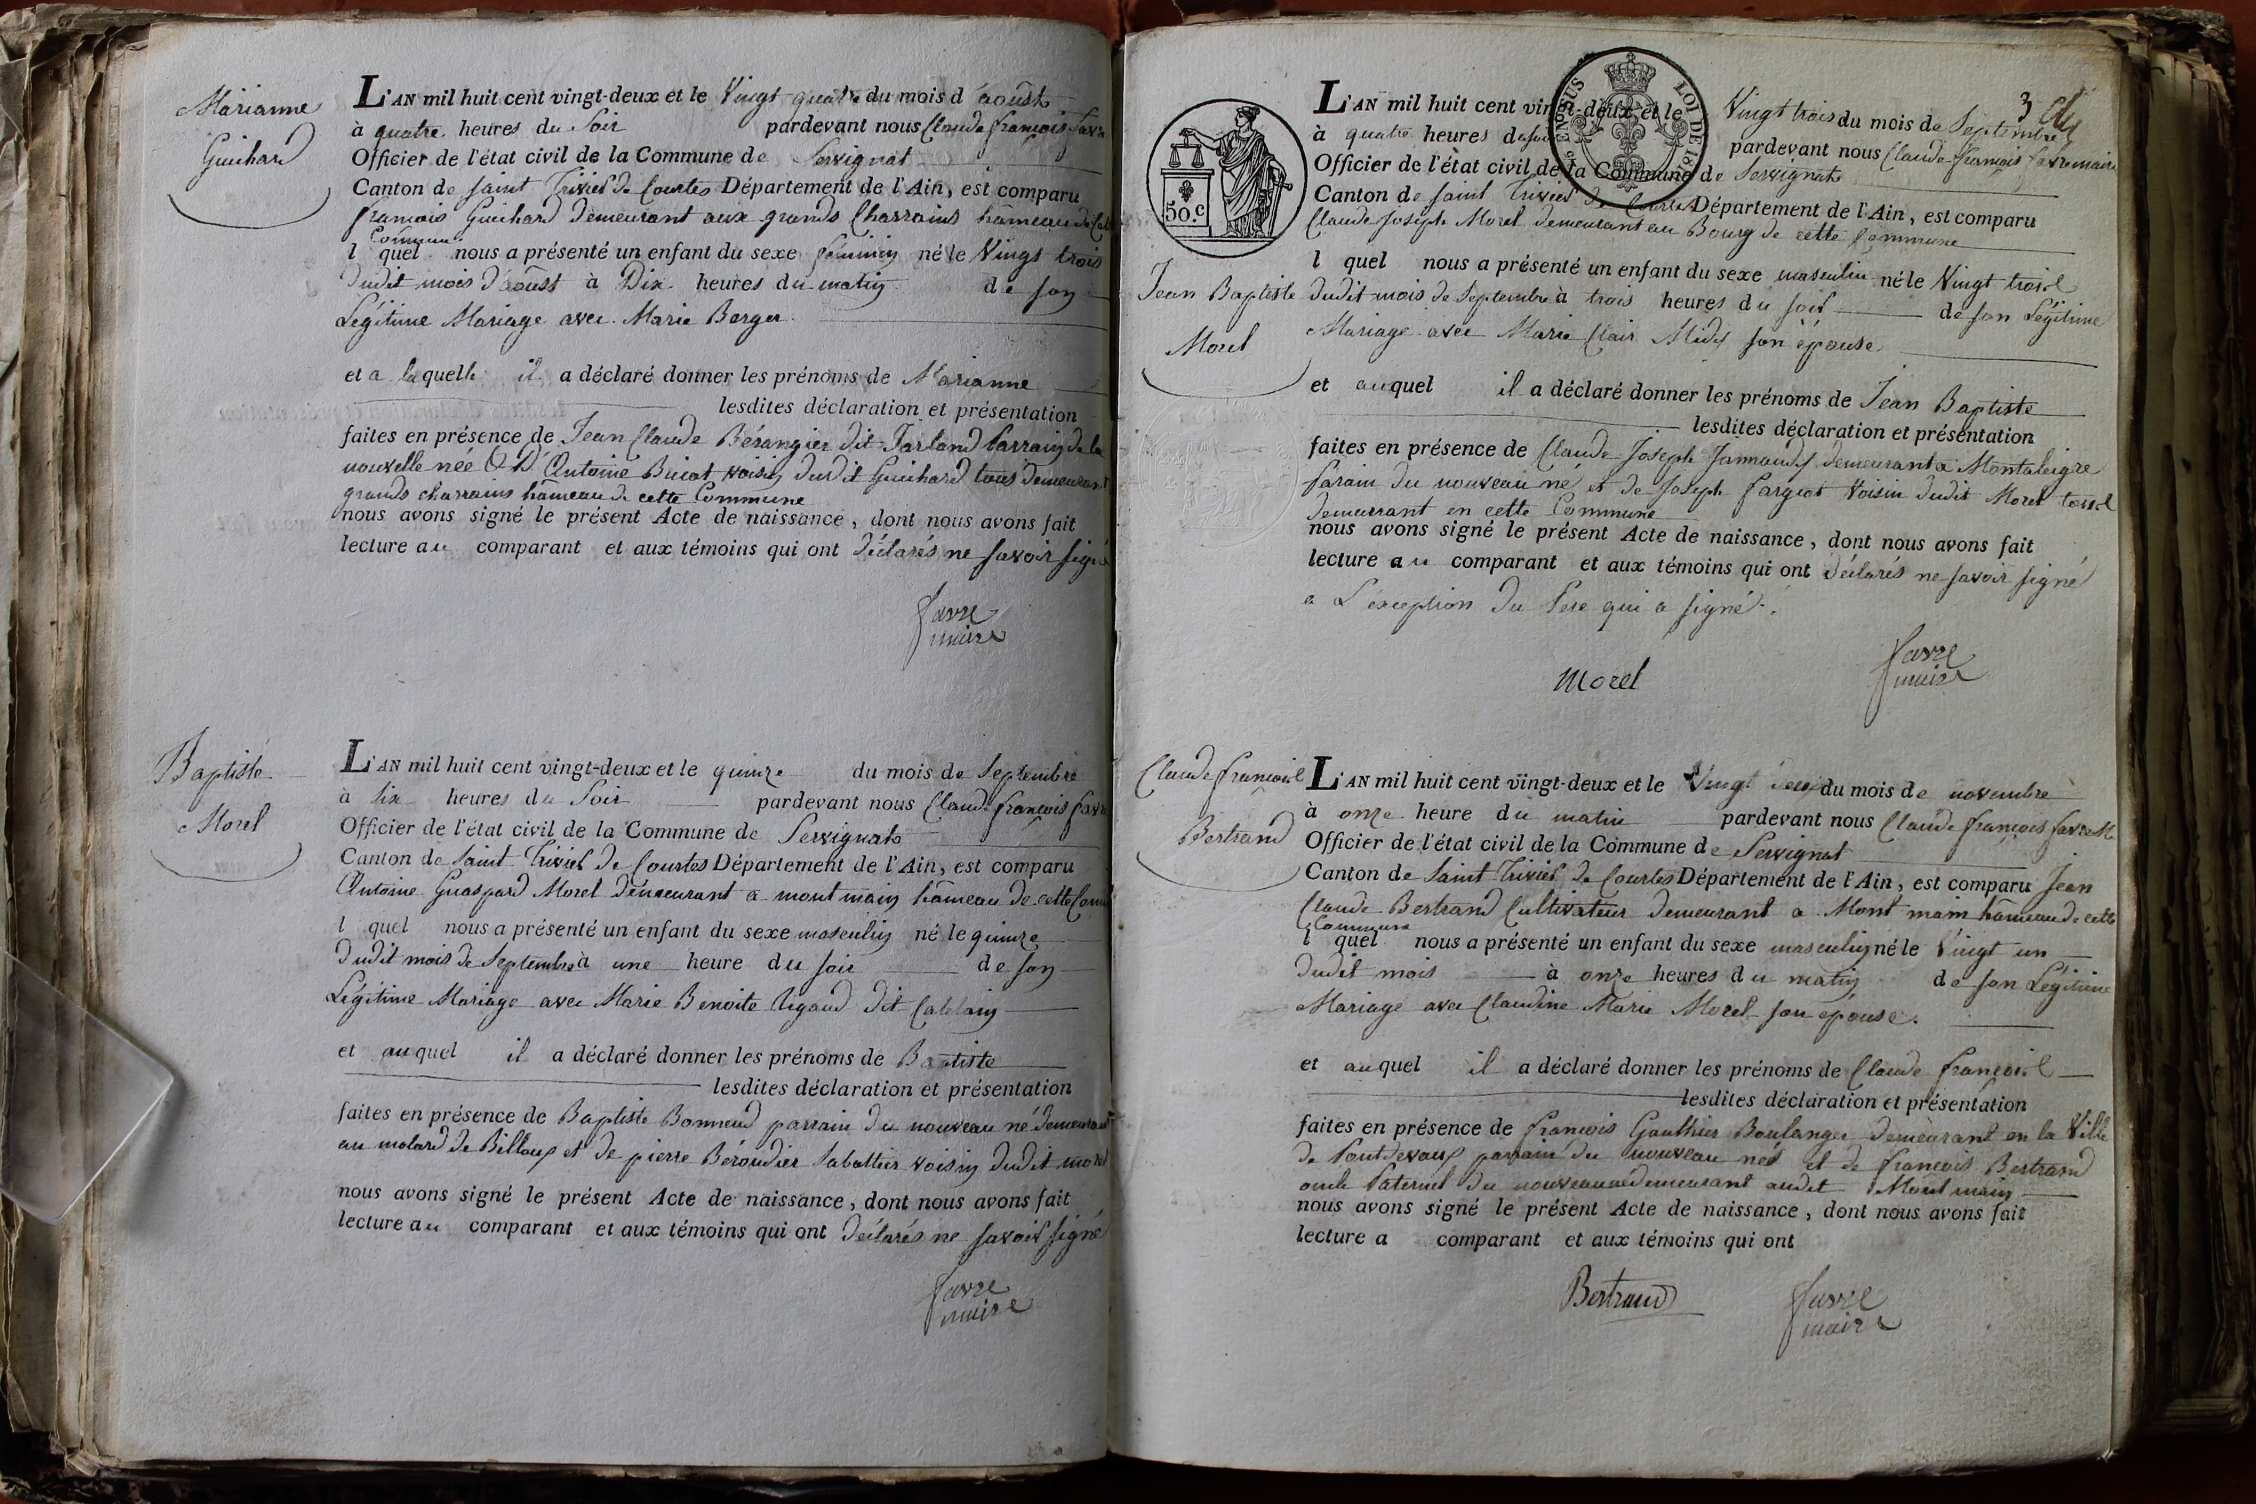 Marianne
Guichard
L'AN mil huit cent vingt-deux et le Vingt quatre du mois d'aoûst
à quatre heures du Soir pardevant nous Claude françois favre
Officier de l'état civil de la Commune de Servignat
Canton de Saint Trivier de Courtes Département de l'Ain, est comparu
françois Guichard demeurant aux grands Charrains hâmeau de Cette
Commune
l quel nous a présenté un enfant du sexe féminin né le Vingt trois
dudit mois d'aoûst à Dix heures du matin de son
Légitime Mariage avec Marie Berger
et a laquelle il a déclaré donner les prénoms de Marianne
lesdites déclaration et présentation
faites en présence de Jean Claude Bérangier dit Tarland Parrain de la
nouvelle née & D'Antoine Buiat voisin dudit Guichard tous demeurant
grands charrains hâmeau de cette Commune
nous avons signé le présent Acte de naissance, dont nous avons fait
lecture au comparant et aux témoins qui ont déclarés ne savoir signé
favre
maire
Baptiste
Morel
L'AN mil huit cent vingt-deux et le quinze du mois de Septembre
à Six heures du Soir pardevant nous Claude françois favre
Officier de l'état civil de la Commune de Servignat
Canton de Saint Trivier de Courtes Département de l'Ain, est comparu
Antoine Guaspard Morel demeurant a mont main hâmeau de cette Comm
l quel nous a présenté un enfant du sexe masculin né le quinze
dudit mois de Septembre à une heure du soir de son
Légitime Mariage avec Marie Benoite Rigaud dit Catelain
et auquel il a déclaré donner les prénoms de Baptiste
lesdites déclaration et présentation
faites en présence de Baptiste Bonneud parrain du nouveau né demeurant
au molard de Billoux et de pierre Béroudier Sabottier voisin dudit morel
nous avons signé le présent Acte de naissance, dont nous avons fait
lecture au comparant et aux témoins qui ont déclarés ne savoir signé
favre
maire
3
LOI DE
50.c
L'AN mil huit cent vingt-deux et le Vingt trois du mois de Septembre
à quatre heures du soir pardevant nous Claude françois favre maire
Officier de l'état civil de la Commune de Servignat
Canton de Saint Trivier de Courtes Département de l'Ain, est comparu
Claude Joseph Morel demeurant au Bourg de cette Commune
l quel nous a présenté un enfant du sexe masculin né le Vingt trois
Jean Baptiste
Morel
dudit mois de Septembre à trois heures du soir de son Légitime
Mariage avec Marie Clair Midy son épouse
et auquel il a déclaré donner les prénoms de Jean Baptiste
lesdites déclaration et présentation
faites en présence de Claude Joseph Jannaudy demeurant a Montaleigre
parain du nouveau né et de Joseph Pargeot Voisin dudit Morel tous
demeurant en cette Commune
nous avons signé le présent Acte de naissance, dont nous avons fait
lecture au comparant et aux témoins qui ont déclarés ne savoir signé
a L'exception du Pere qui a signé.
Morel
favre
maire
Claude françois
Bertrand
L'AN mil huit cent vingt-deux et le Vingt deux du mois de novembre
à onze heure du matin pardevant nous Claude françois favre M
Officier de l'état civil de la Commune de Servignat
Canton de Saint Trivier de Courtes Département de l'Ain, est comparu Jean
Claude Bertrand Cultivateur demeurant a Mont main hâmeau de cette
Commune
l quel nous a présenté un enfant du sexe masculin né le Vingt un
dudit mois à onze heures du matin de son Légitime
Mariage avec Claudine Marie Morel son épouse.
et auquel il a déclaré donner les prénoms de Claude françois
lesdites déclaration et présentation
faites en présence de françois Gauthier Boulanger demeurant en la Ville
de Pontdevaux parrain du nouveau nés et de françois Bertrand
oncle Paternel du nouveau né demeurant audit Mont main
nous avons signé le présent Acte de naissance, dont nous avons fait
lecture a comparant et aux témoins qui ont
Bertrand
favre
maire